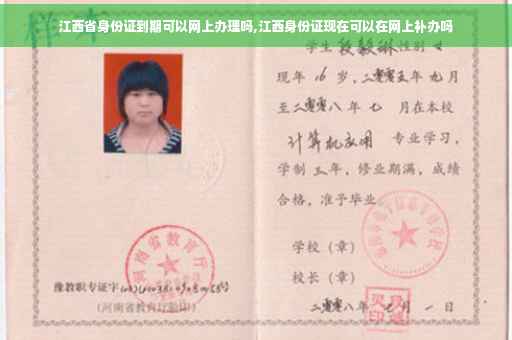 江西省身份证到期可以网上办理吗,江西身份证现在可以在网上补办吗
样本
学生 性别 女
现年 16 岁,二零零五年 九月
至二零零八年 七 月在本校
计算机应用 专业学习,
学制 三年,修业期满,成绩
合格,准予毕业
学校(章)
校长(章)
二零零八年 七 月 一 日
河南省教育厅
豫教职专证字
(河南省教育厅验印)